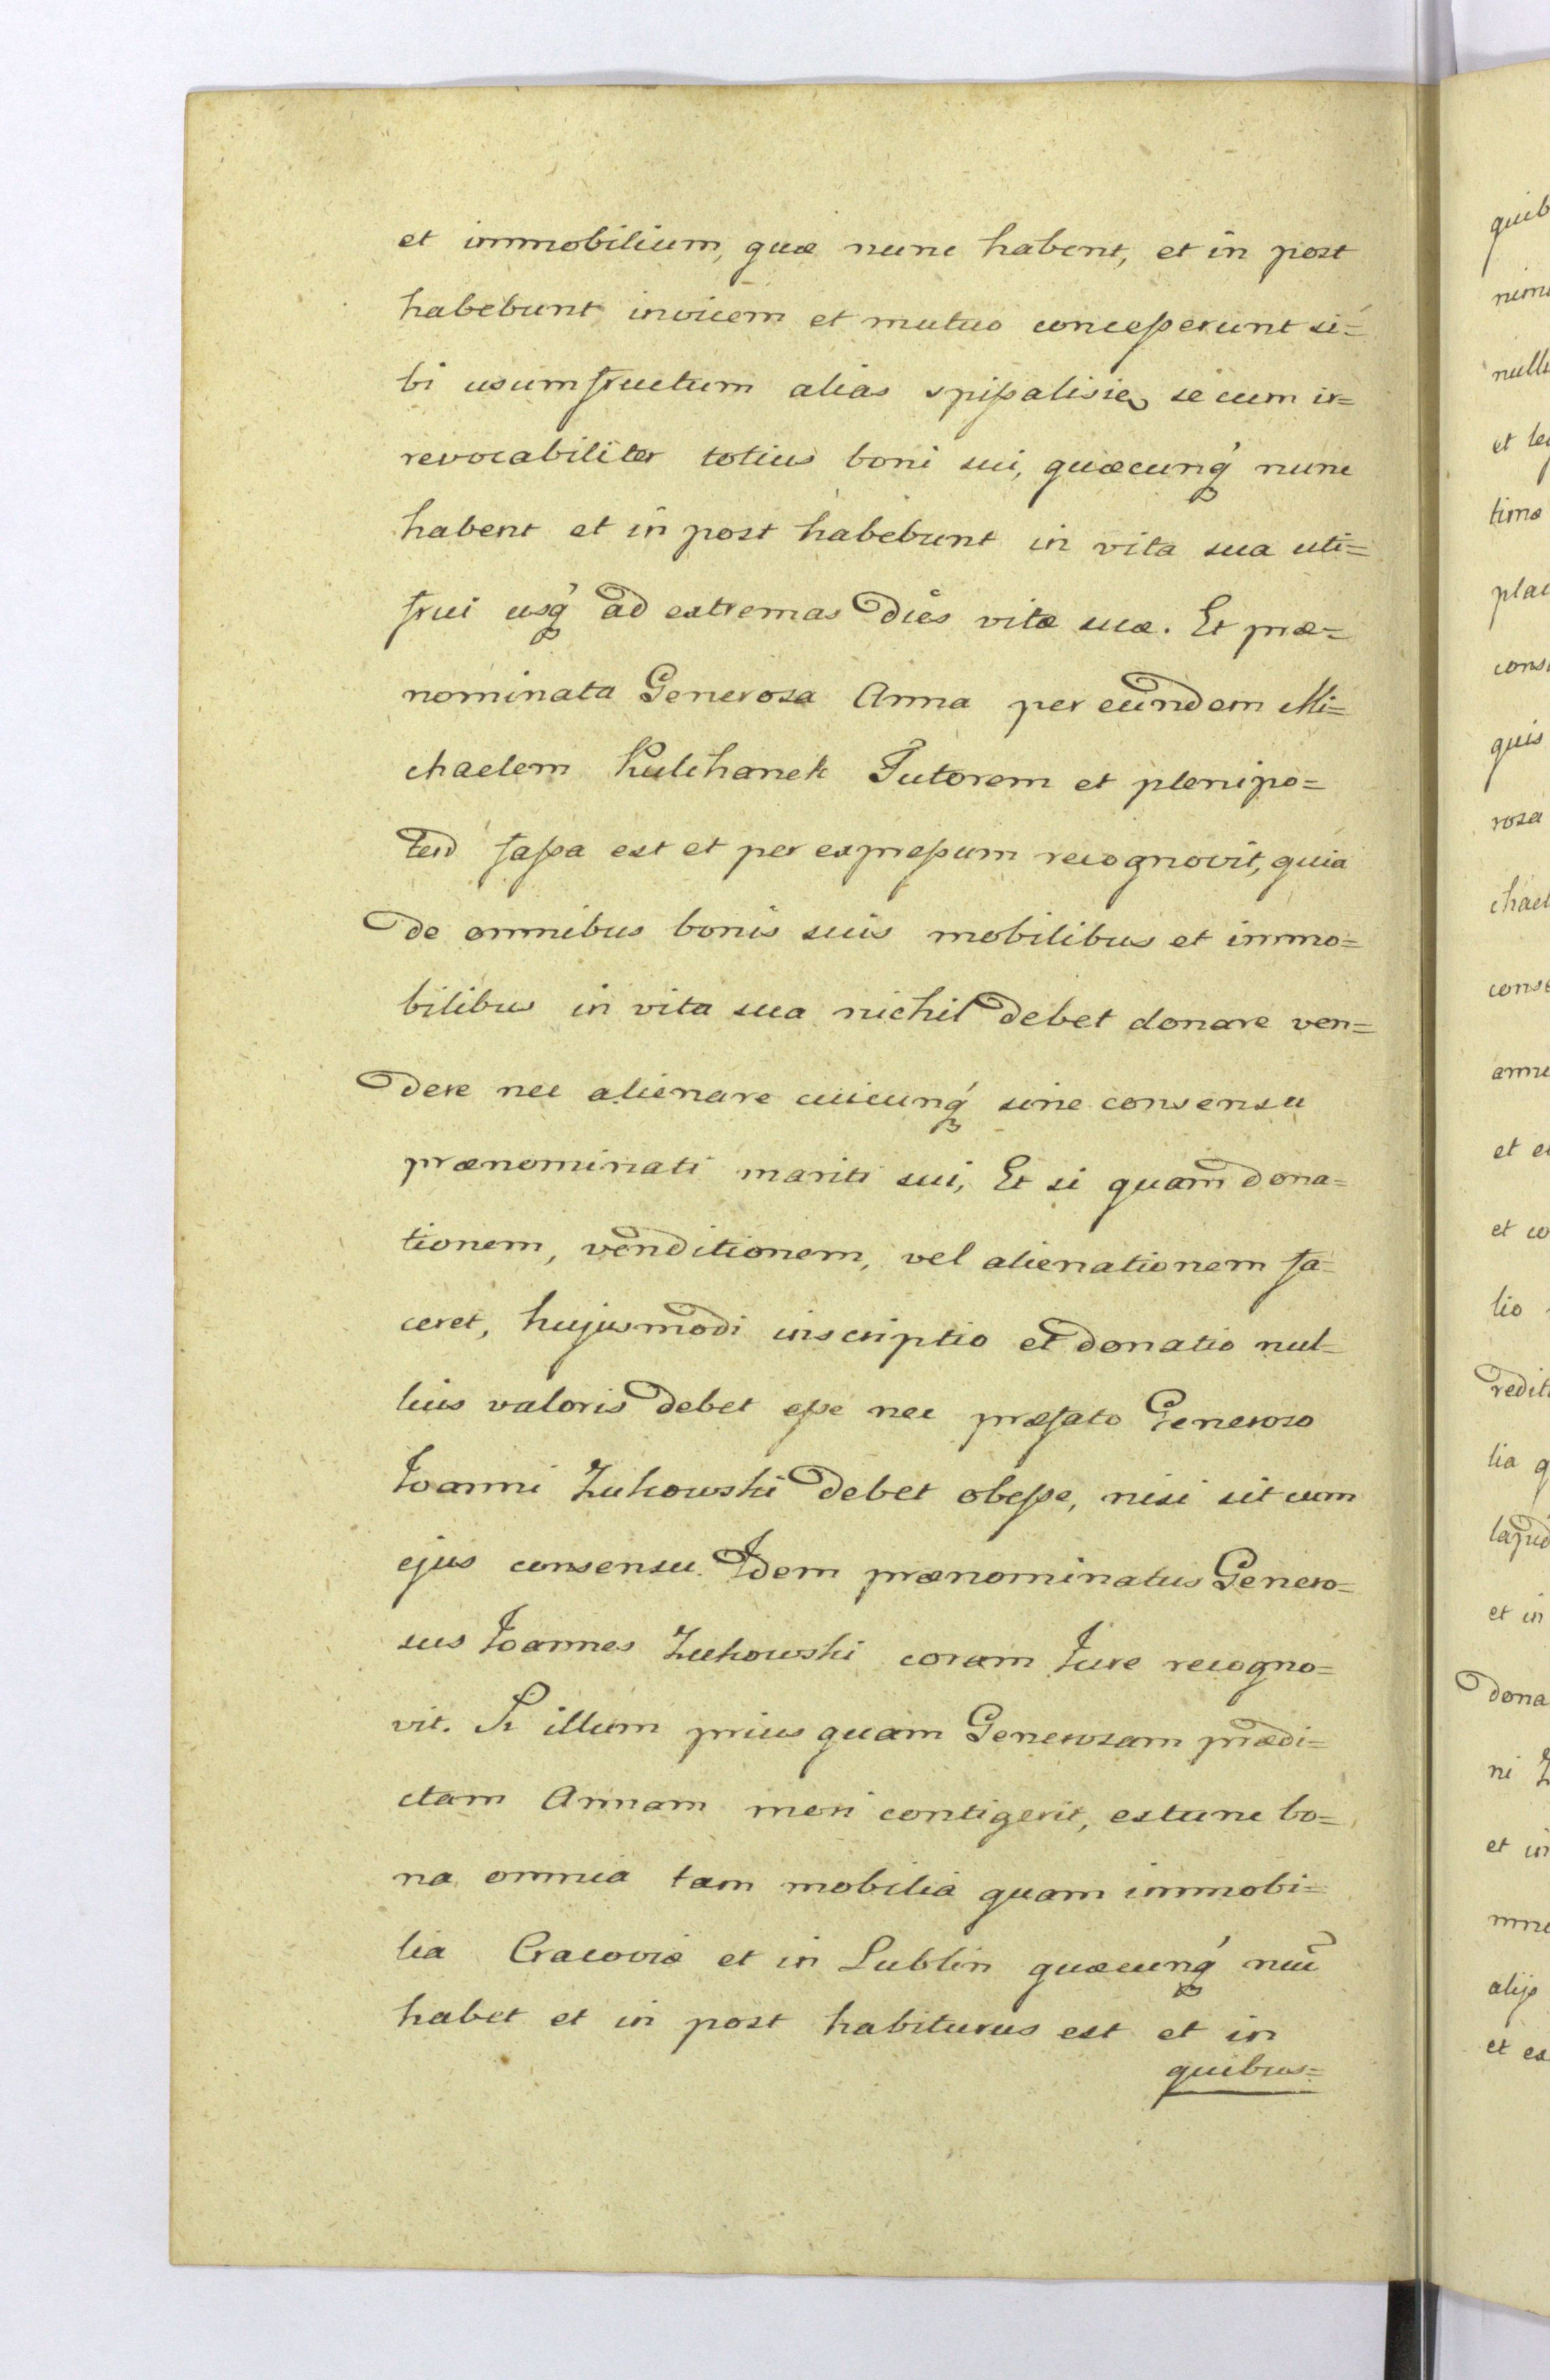 et immobilium, quæ nunc habent, et in post
habebunt invicem et mutuo concesserunt si=
bi usumfructum alias spissalisię secum ir=
revocabiliter totius boni sui, quæcunq́ nunc
habent et in post habebunt in vita sua uti=
frui usq́ ad extremas dies vitæ suæ. Et præ=
nominata Generosa Anna per eundem Mi=
chaelem Kulchanek Tutorem et plenipo=
ten fassa est et per expressum recognovit, quia
de omnibus bonis suis mobilibus et immo=
bilibus in vita sua nichil debet donare ven=
dere nec alienare cuicunq́ sine consensu
prænominati mariti sui, Et si quam dona=
tionem, venditionem, vel alienationem fa=
ceret, hujusmodi inscriptio et donatio nul=
lius valoris debet esse nec præfato Generoso
Joanni Zukowski debet obesse, nisi sit cum
ejus consensu. Idem prænominatus Genero=
sus Joannes Zukowski coram Jure recogno=
vit. Si illum prius quam Generosam prædi=
ctam Annam mori contigerit, extunc bo=
na omnia tam mobilia quam immobi=
lia Cracoviæ et in Lublin quæcunq́ nūc
habet et in post habiturus est et in
quibus=
quib
nullu
et leg
timo
plac
cons
quis
rosa
chael
conse
annu
et e
et co
lio
redit
lia q
et in
dona
ni Z
et in
mne
alijs
et ex